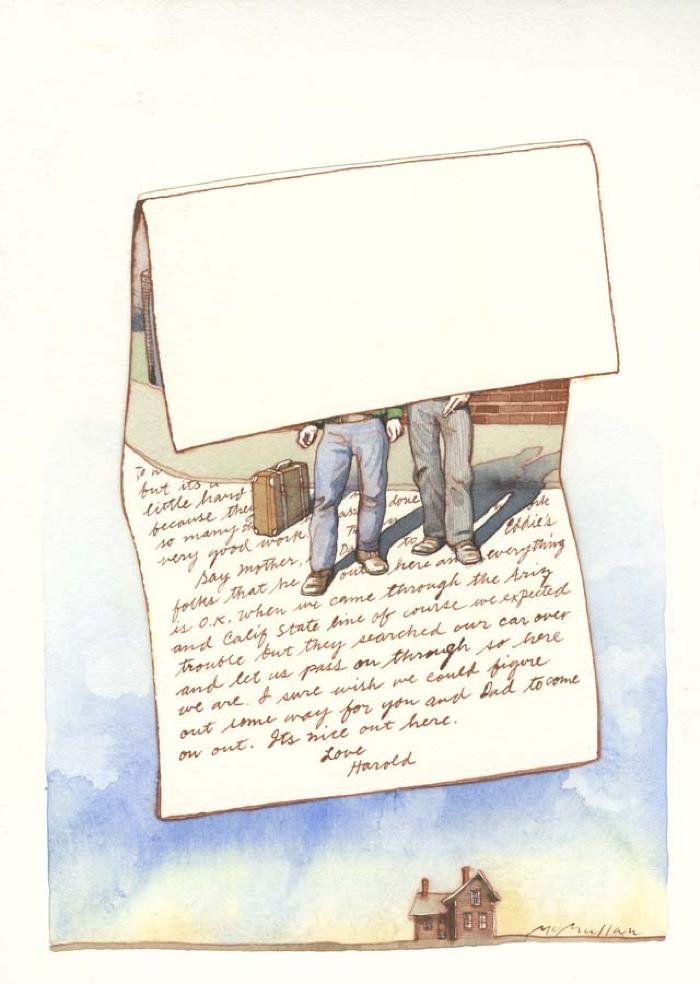 but its
little hard
because the
so many
very good work.
done
Eddie's
Say Mother,
folks that he
out here and everything
is O.K. When we came through the Ariz
and Calif State line of course we expected
trouble but they searched our car over
and let us pass on through so here
we are. I sure wish we could figure
out some way for you and Dad to come
on out. Its nice out here.
Love
Harold
McMullan